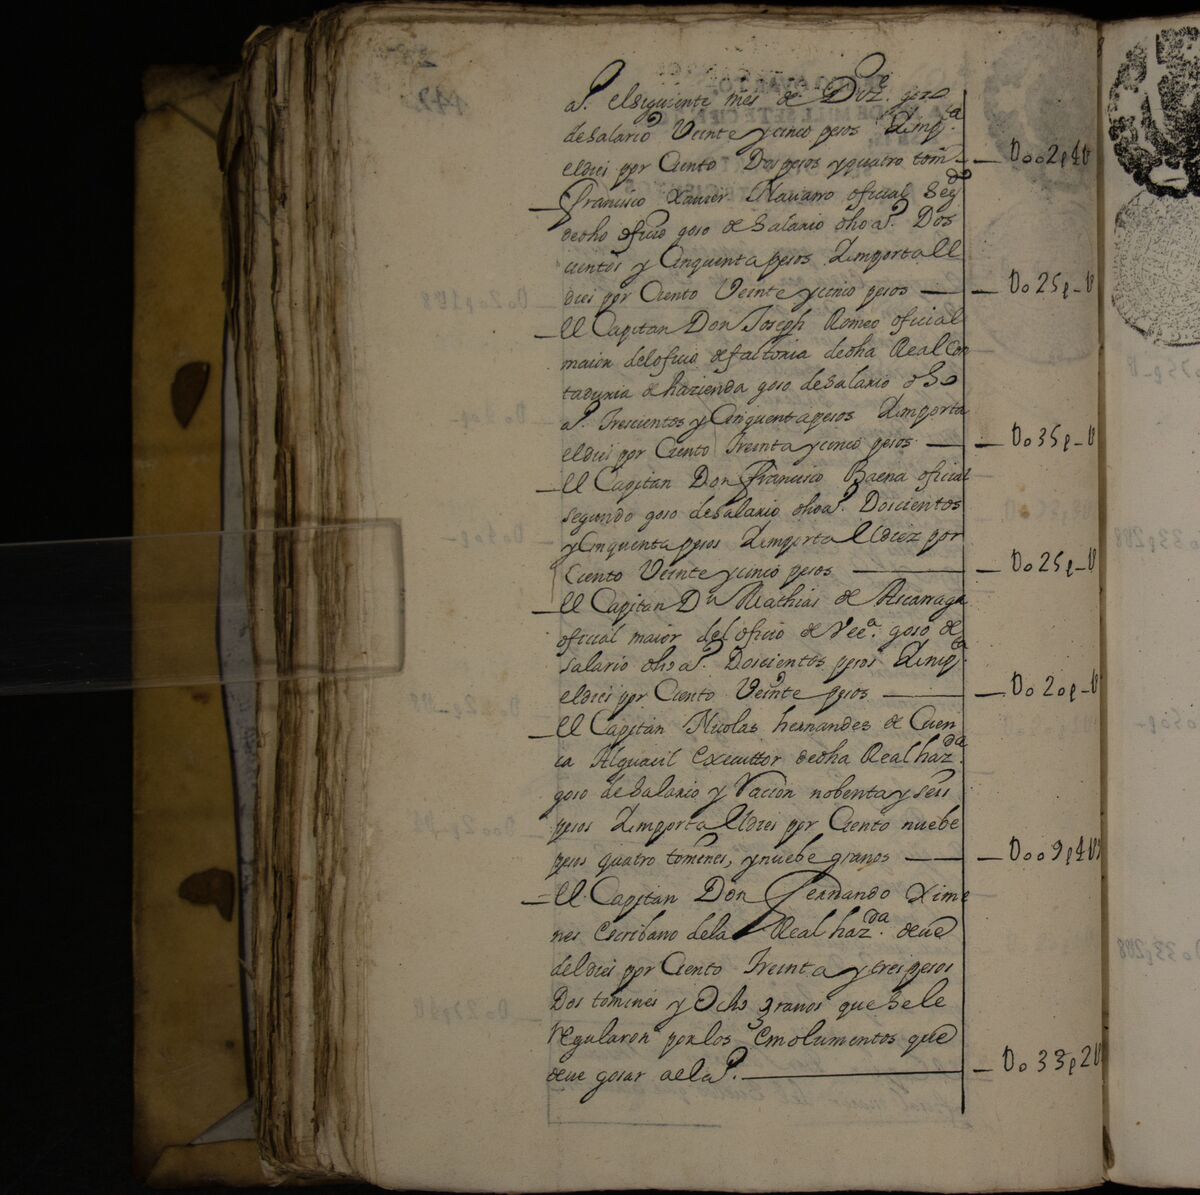 a.ᵖ el siguiente mes de Diz.ᵉ goso
de salario Veinte y cinco pesos Ymp.ᵗᵃ
eldiei por Ciento Dos pesos y quatro tom.ˢ — U002p4U
Francisco Xavier Navarro oficial Seg.ᵈᵒ
dedho oficio goso de Salario dho a.ᵖ Dos
cientos y Cinquenta pesos Ymporta Ell
diei por Ciento Veinte y cinco pesos — U025p-U
El Capitan Don Joseph Romeo oficial
maior deloficio defactoria dedha Real Con
taduria de hazienda goso desalario dho
a.ᵖ Trescientos y Cinquenta pesos Ymporta
eldiei por Ciento Treinta y cinco pesos — U035p-U
El Capitan Don Francisco Baena oficial
segundo goso desalario dhoa.ᵖ Doscientos
y Cinquenta pesos Ymporta Eldiez por
Ciento Veinte y cinco pesos — U025p-U
El Capitan Dⁿ Mathias de Ascarraga
oficial maior del oficio de Vee.ᵃ goso de
salario dho a.ᵖ Doscientos pesos Ymp.ᵗᵃ
eldiei por Ciento Veinte pesos — U020p-U
El Capitan Nicolas hernandes de Cuen
ca Alguacil Executtor dedha Real haz.ᵈᵃ
goso desalario y Racion nobenta y seis
pesos Ymporta Eldiei por Ciento nuebe
pesos quatro tomines, y nuebe granos — U009p4U9
El Capitan Don Fernando Xime
nes Escribano dela Real haz.ᵈᵃ deue
deldiei por Ciento Treinta y tres pesos
Dos tomines y Ocho granos que Se le
regularon por los Emolumentos que
deue gosar aela.ᵖ — U033p2U